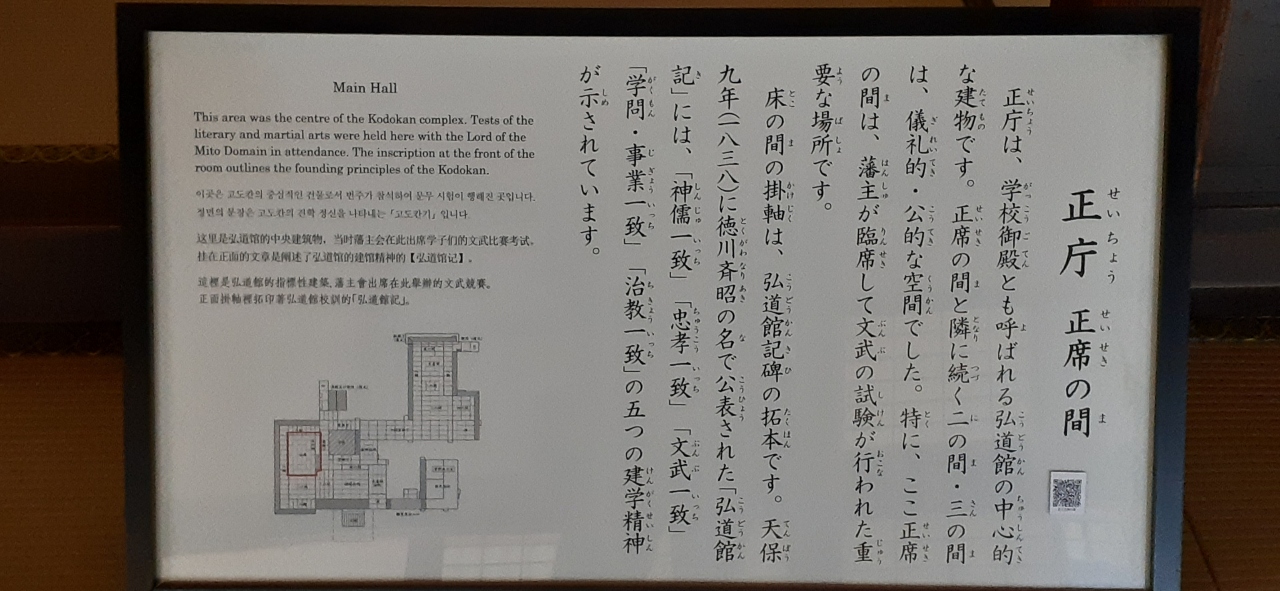 正庁 正席の間
正庁は、学校御殿とも呼ばれる弘道館の中心的
な建物です。正席の間と隣に続く二の間・三の間
は、儀礼的・公的な空間でした。特に、ここ正席
の間は、藩主が臨席して文武の試験が行われた重
要な場所です。
床の間の掛軸は、弘道館記碑の拓本です。天保
九年(一八三八)に徳川斉昭の名で公表された「弘道館
記」には、「神儒一致」「忠孝一致」「文武一致」
「学問・事業一致」「治教一致」の五つの建学精神
が示されています。
Main Hall
This area was the centre of the Kodokan complex. Tests of the
literary and martial arts were held here with the Lord of the
Mito Domain in attendance. The inscription at the front of the
room outlines the founding principles of the Kodokan.
이곳은 고도칸의 중심적인 건물로서 번주가 참석하여 문무 시험이 행해진 곳입니다.
정면의 문장은 고도칸의 건학 정신을 나타내는「고도칸기」입니다.
这里是弘道馆的中央建筑物，当时藩主会在此出席学子们的文武比赛考试。
挂在正面的文章是阐述了弘道馆的建馆精神的【弘道馆记】。
這裡是弘道館的指標性建築，藩主會出席在此舉辦的文武競賽。
正面掛軸裡拓印著弘道館校訓的「弘道館記」。